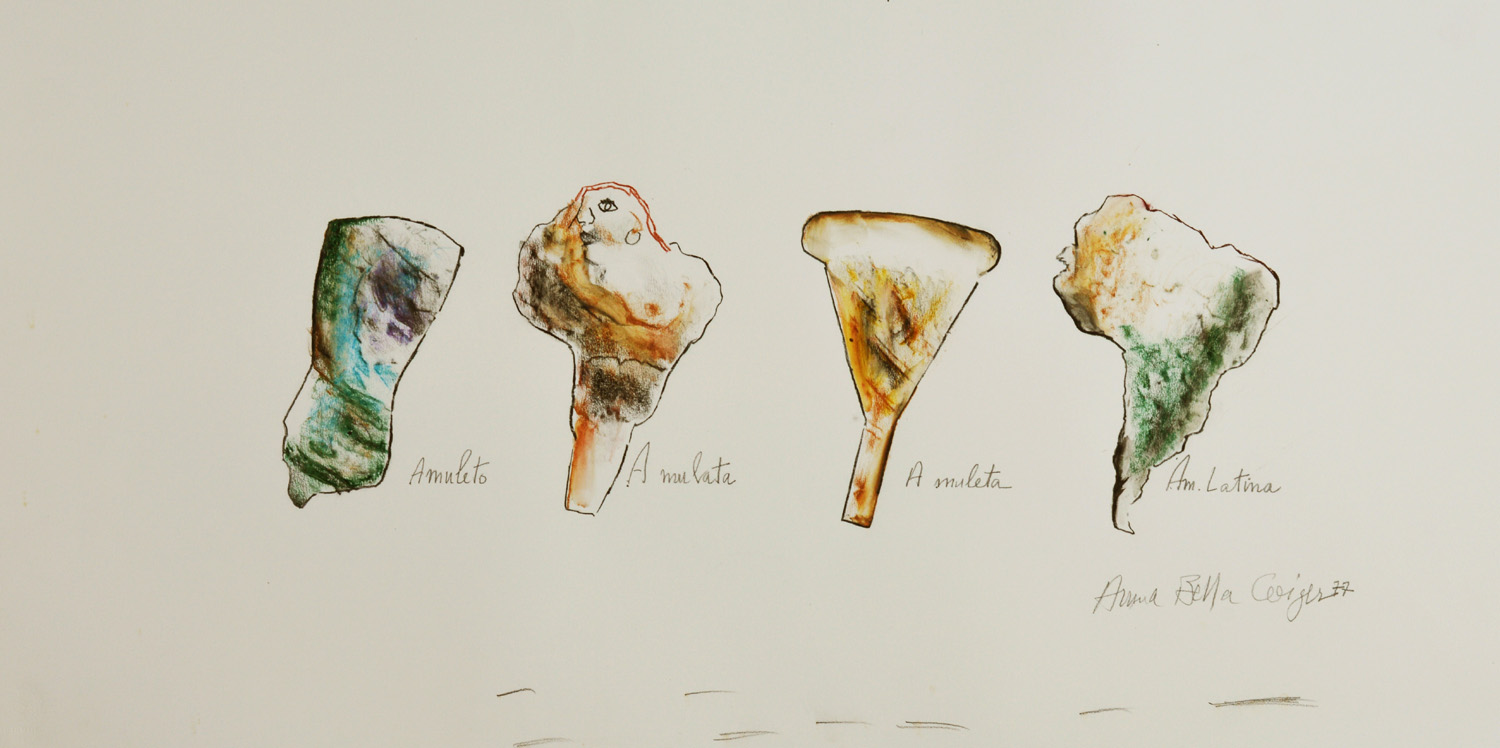 Amuleto
A mulata
A muleta
Am. Latina
Anna Bella Geiger 77